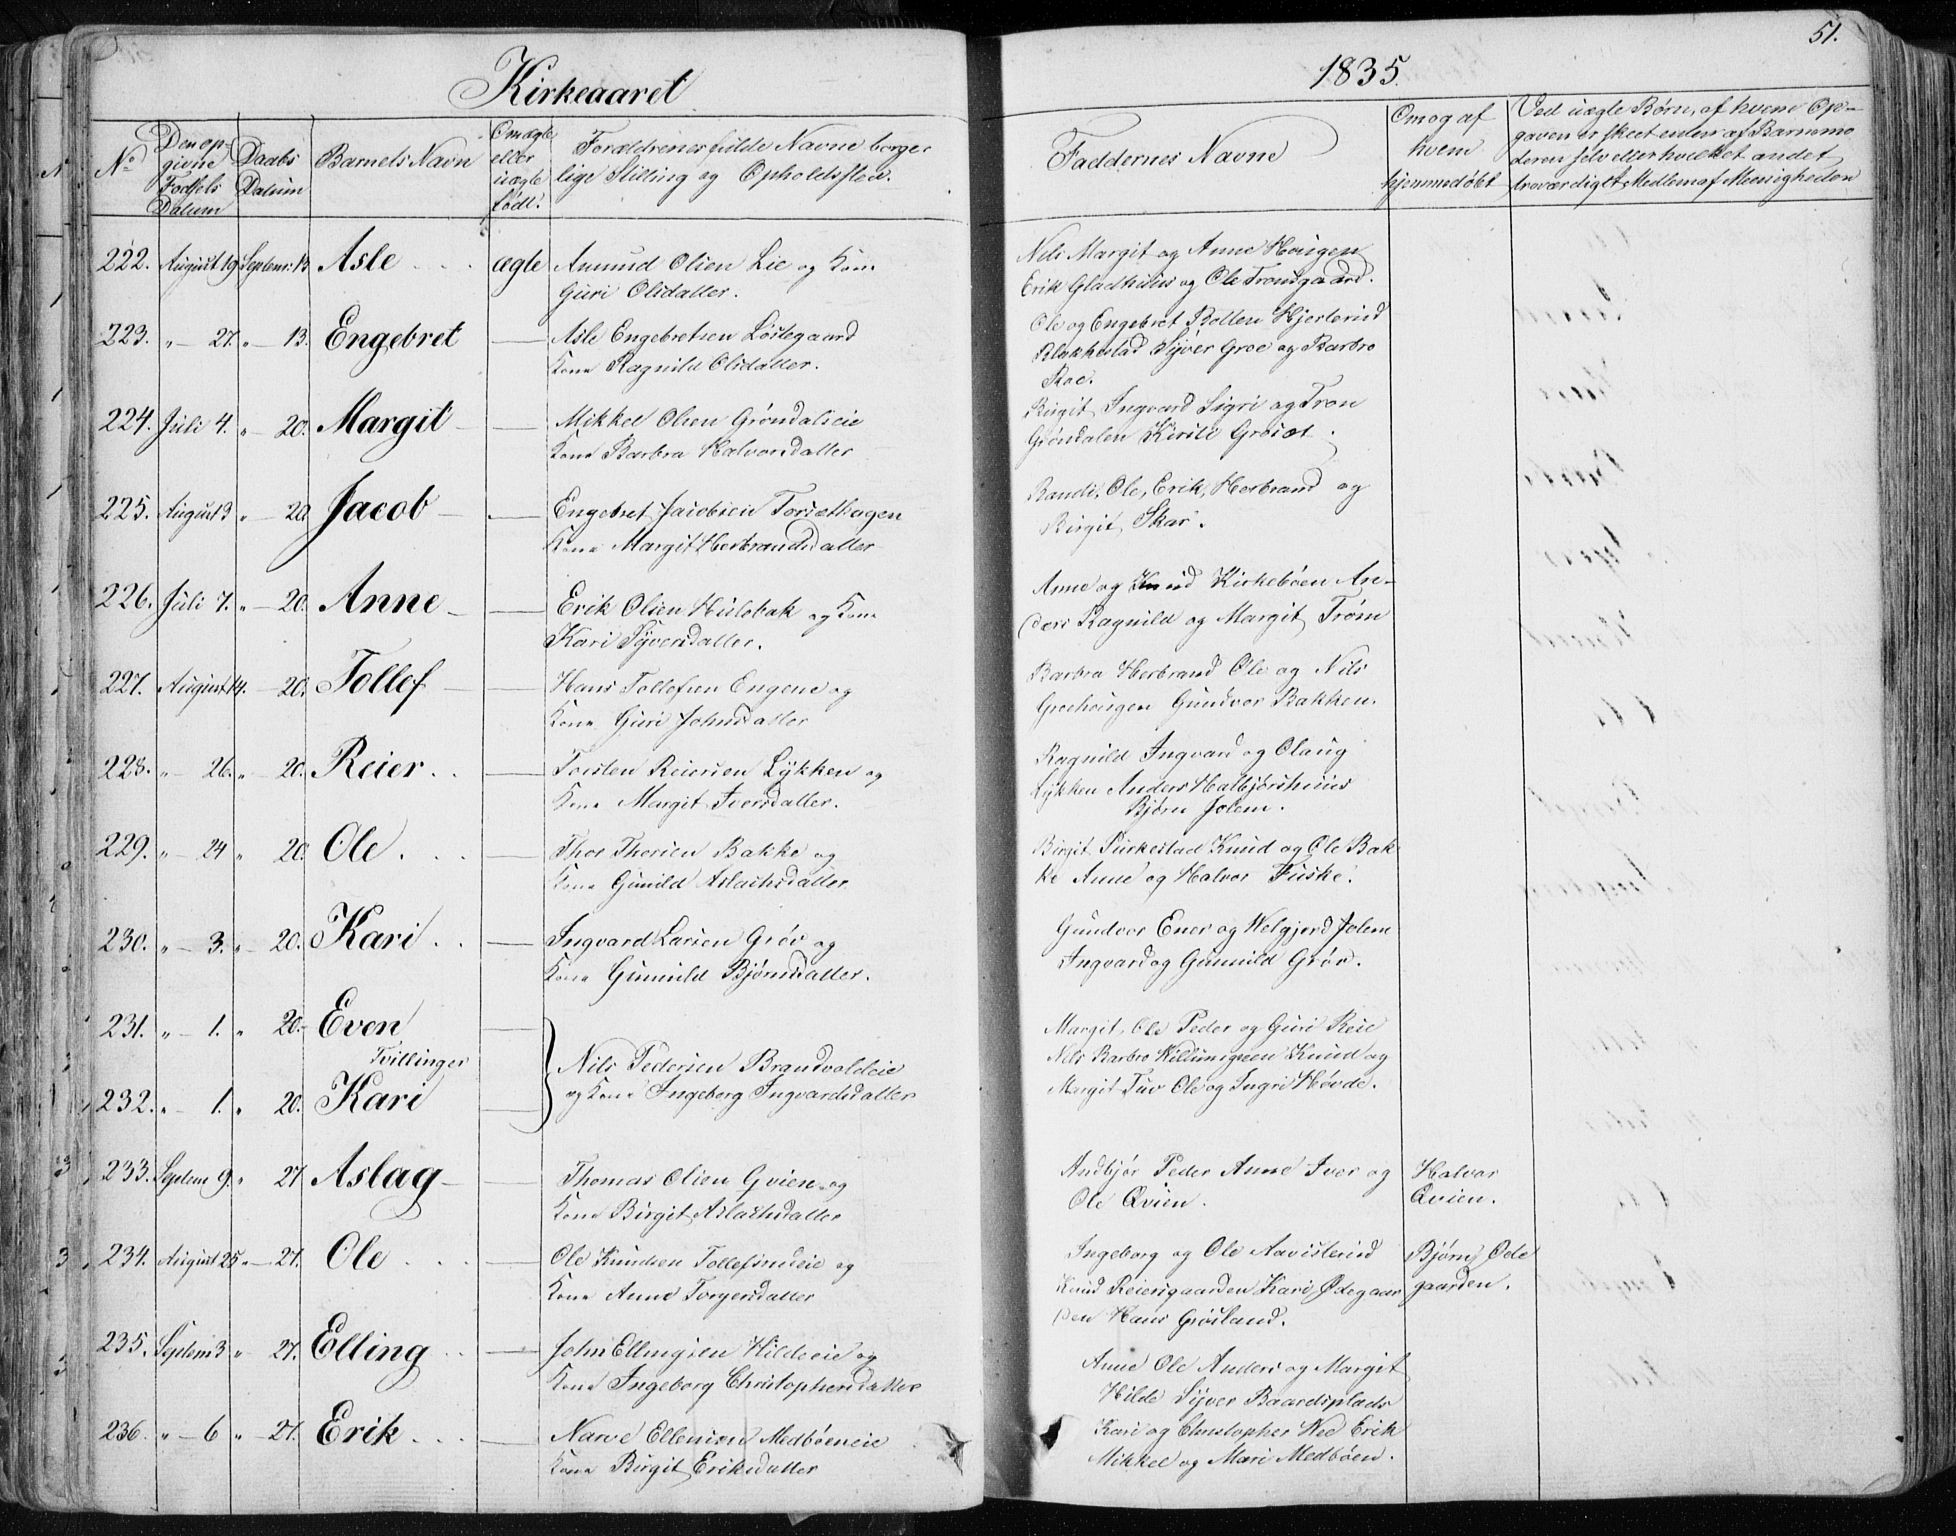 51.
Kirkeaaret 1835.
No
Den opgivne Fødsels Datum
Daabs Datum
Barnets Navn
Om ægte eller uægte født.
Forældrenes fulde Navne borgerlige Stilling og Opholdssted.
Faddernes Navne
Om og af hvem hjemmedøbt
Ved uægte Børn, af hvem Opgaven er skeet enten af Barnemoderen selv eller hvilket andet troværdigt Medlem af Menigheden
222. August 19 Septemr: 13. Asle ægte Amund Olsen Lie og Kone
Guri Olsdatter.
Nils Margit og Anne Hougen
Erik Gladhuus og Ole Trondsgaard.
223. " — 27. " — 13. Engebret — Asle Engebretsen Løstegaard
Kone Ragnild Olsdatter.
Ole og Engebret Rotten
Blakkestad Syver Groe og Barbro
224. Juli 4. " — 20. Margit — Mikkel Olsen Grøndalseie
Kone Barbra Halvorsdatter
Birgit Ingvard Sigri og Tron
Grøndalen Kirsti Grøset.
225. August 3 " — 20. Jacob — Engebret Jacobsen Torsethagen
Kone Margit Herbrandsdatter
Randi, Ole, Erik, Herbrand og
Birgit Skar.
226. Juli 7. " — 20. Anne — Erik Olsen Hulebak og Kone
Kari Syversdatter.
Anne og Knud Kirkebøen An-
ders Ragnild og Margit Trøm
227. August 14. — 20. Tollef — Hans Tollefsen Engene og
Kone Guri Johnsdatter
Barbra Herbrand Ole og Nils
Groehougen Gundvor Bakken.
228. " — 26. " — 20. Reier — Torsten Reiersen Lykken og
Kone Margit Iversdatter.
Ragnild Ingvard og Olaug
Lykken Anders Halbjørshuus
Bjørn Jolem.
229. " — 24 " 20. Ole — Thor Thorsen Bakke og
Kone Gunild Aslachsdatter
Birgit Purkestad Knud og Ole Bak-
ke Anne og Halvor Fuske.
230. " — 3. " — 20. Kari — Ingvard Larsen Grøv og
Kone Gunnild Bjørnsdatter.
Gundvor Ener og Welgjerd Jolem
Ingvard og Gunnild Grøv.
231. " — 1. " 20. Even —
Tvillinger
Nils Pedersen Brandvoldeie
232. " — 1. " 20. Kari — og Kone Ingeborg Ingvardsdatter
Margit, Ole Peder og Guri Reie
Nils Barbro Knud og
Margit Tuv Ole og Ingri Høvde.
233. Septem 9. " 27 Aslag — Thomas Olsen Qvien og
Kone Birgit Aslachsdatter
Andbjør Peder Anne Iver og
Ole Qvien.
Halvor
Qvien.
234. August 25 " — 27. Ole — Ole Knudsen Tollefsrudeie og
Kone Anne Torgersdatter
Ingeborg og Ole Aavisterud
Knud Reiersgaarden Kari Ødegaar
den Hans Grøsland.
Bjørn Øde
gaarden.
235. Septem 3. " 27. Elling — John Ellingsen Hildeeie og
Kone Ingeborg Christophersdatter
Anne Ole Anders og Margit
Hilde Syver Baardsplads
236. " — 6 " — 27. Erik — Narve Ellensen Medbøeneie
Kone Birgit Eriksdatter
Kari og Christopher Wee Erik
Mikkel og Mari Medbøen.